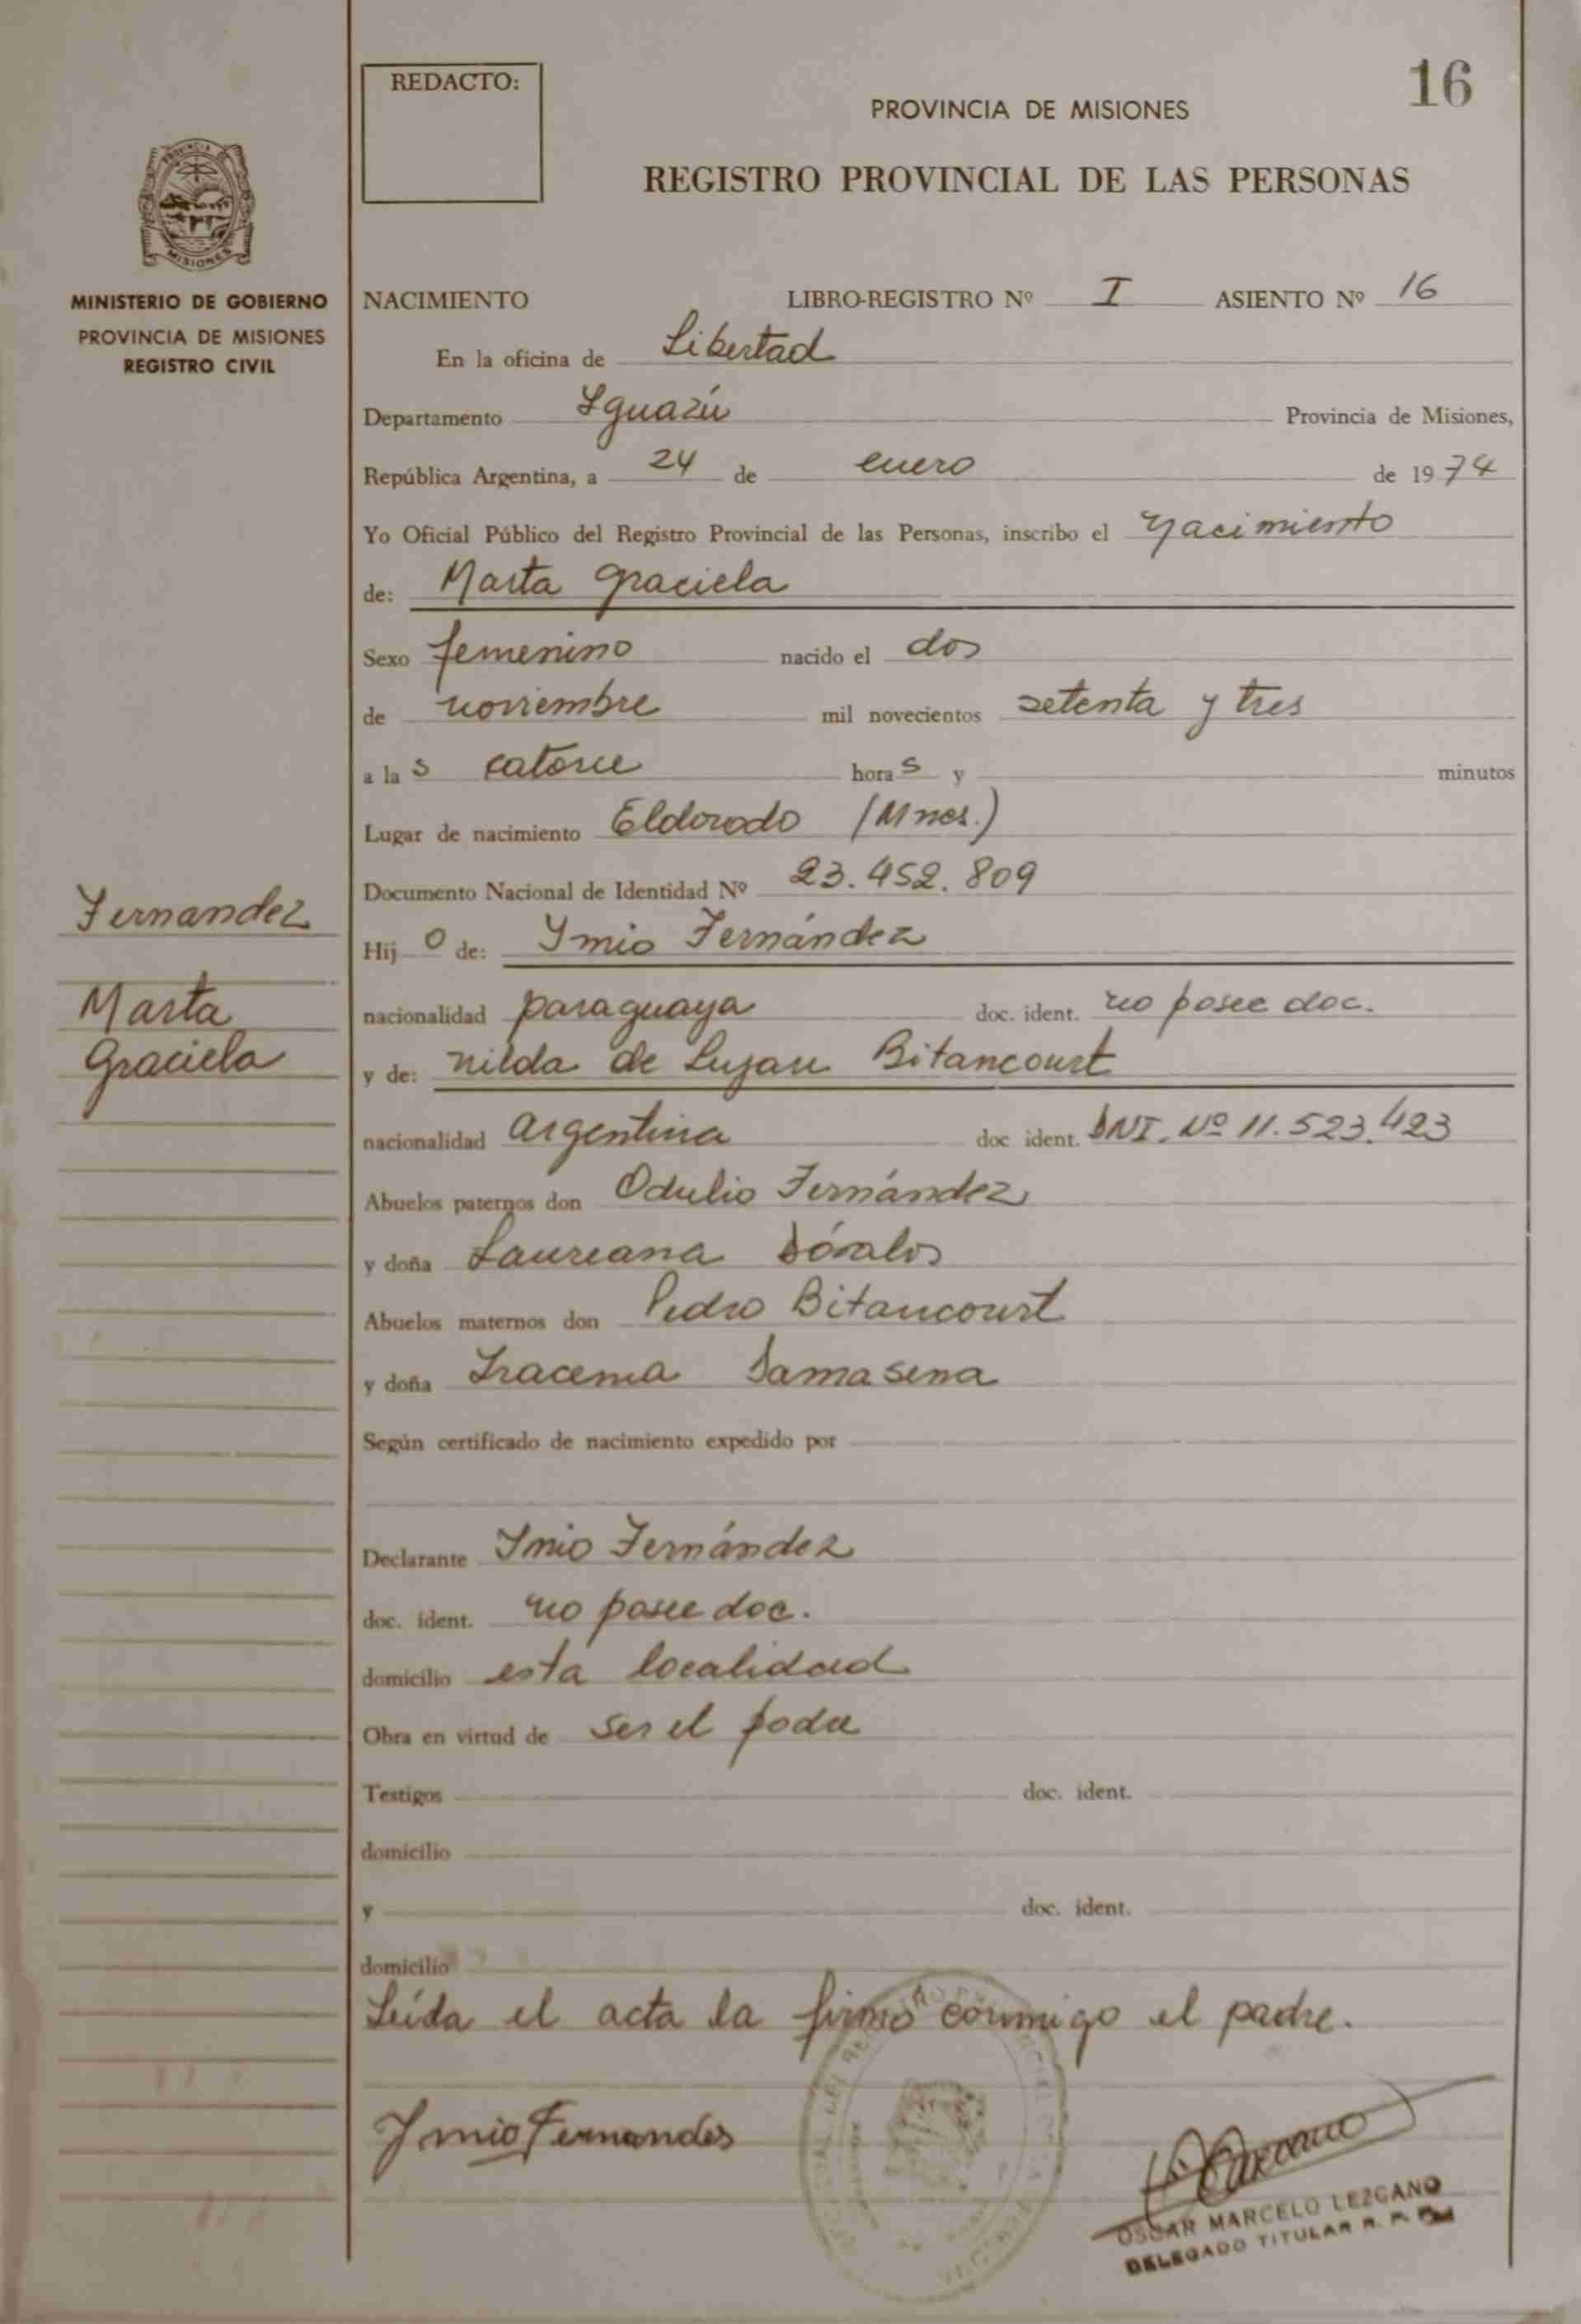 REDACTO:
16
PROVINCIA DE MISIONES
REGISTRO PROVINCIAL DE LAS PERSONAS
MISIONES
MINISTERIO DE GOBIERNO
PROVINCIA DE MISIONES
REGISTRO CIVIL
NACIMIENTO LIBRO-REGISTRO Nº I ASIENTO Nº 16
En la oficina de Libertad
Departamento Iguazú Provincia de Misiones,
República Argentina, a 24 de enero de 1974
Yo Oficial Público del Registro Provincial de las Personas, inscribo el nacimiento
de: Marta Graciela
Sexo femenino nacido el dos
de noviembre mil novecientos setenta y tres
a las catorce horas y minutos
Lugar de nacimiento Eldorado (Mnes.)
Documento Nacional de Identidad Nº 23.452.809
Fernandez
Marta
Graciela
Hijo de: Ymio Fernández
nacionalidad paraguaya doc. ident. no posee doc.
y de: nilda de Lujan Bitancourt
nacionalidad argentina doc ident. DNI. Nº 11.523.423
Abuelos paternos don Odulio Fernández
y doña Laureana Dóvalos
Abuelos maternos don Pedro Bitancourt
y doña Iracema Damasena
Según certificado de nacimiento expedido por
Declarante Ymio Fernández
doc. ident. no posee doc.
domicilio esta localidad
Obra en virtud de ser el
Testigos doc. ident.
domicilio
y doc. ident.
domicilio
Leída el acta la firmó conmigo el padre.
Ymio Fernandes
OSCAR MARCELO LEZCANO
DELEGADO TITULAR R. P.